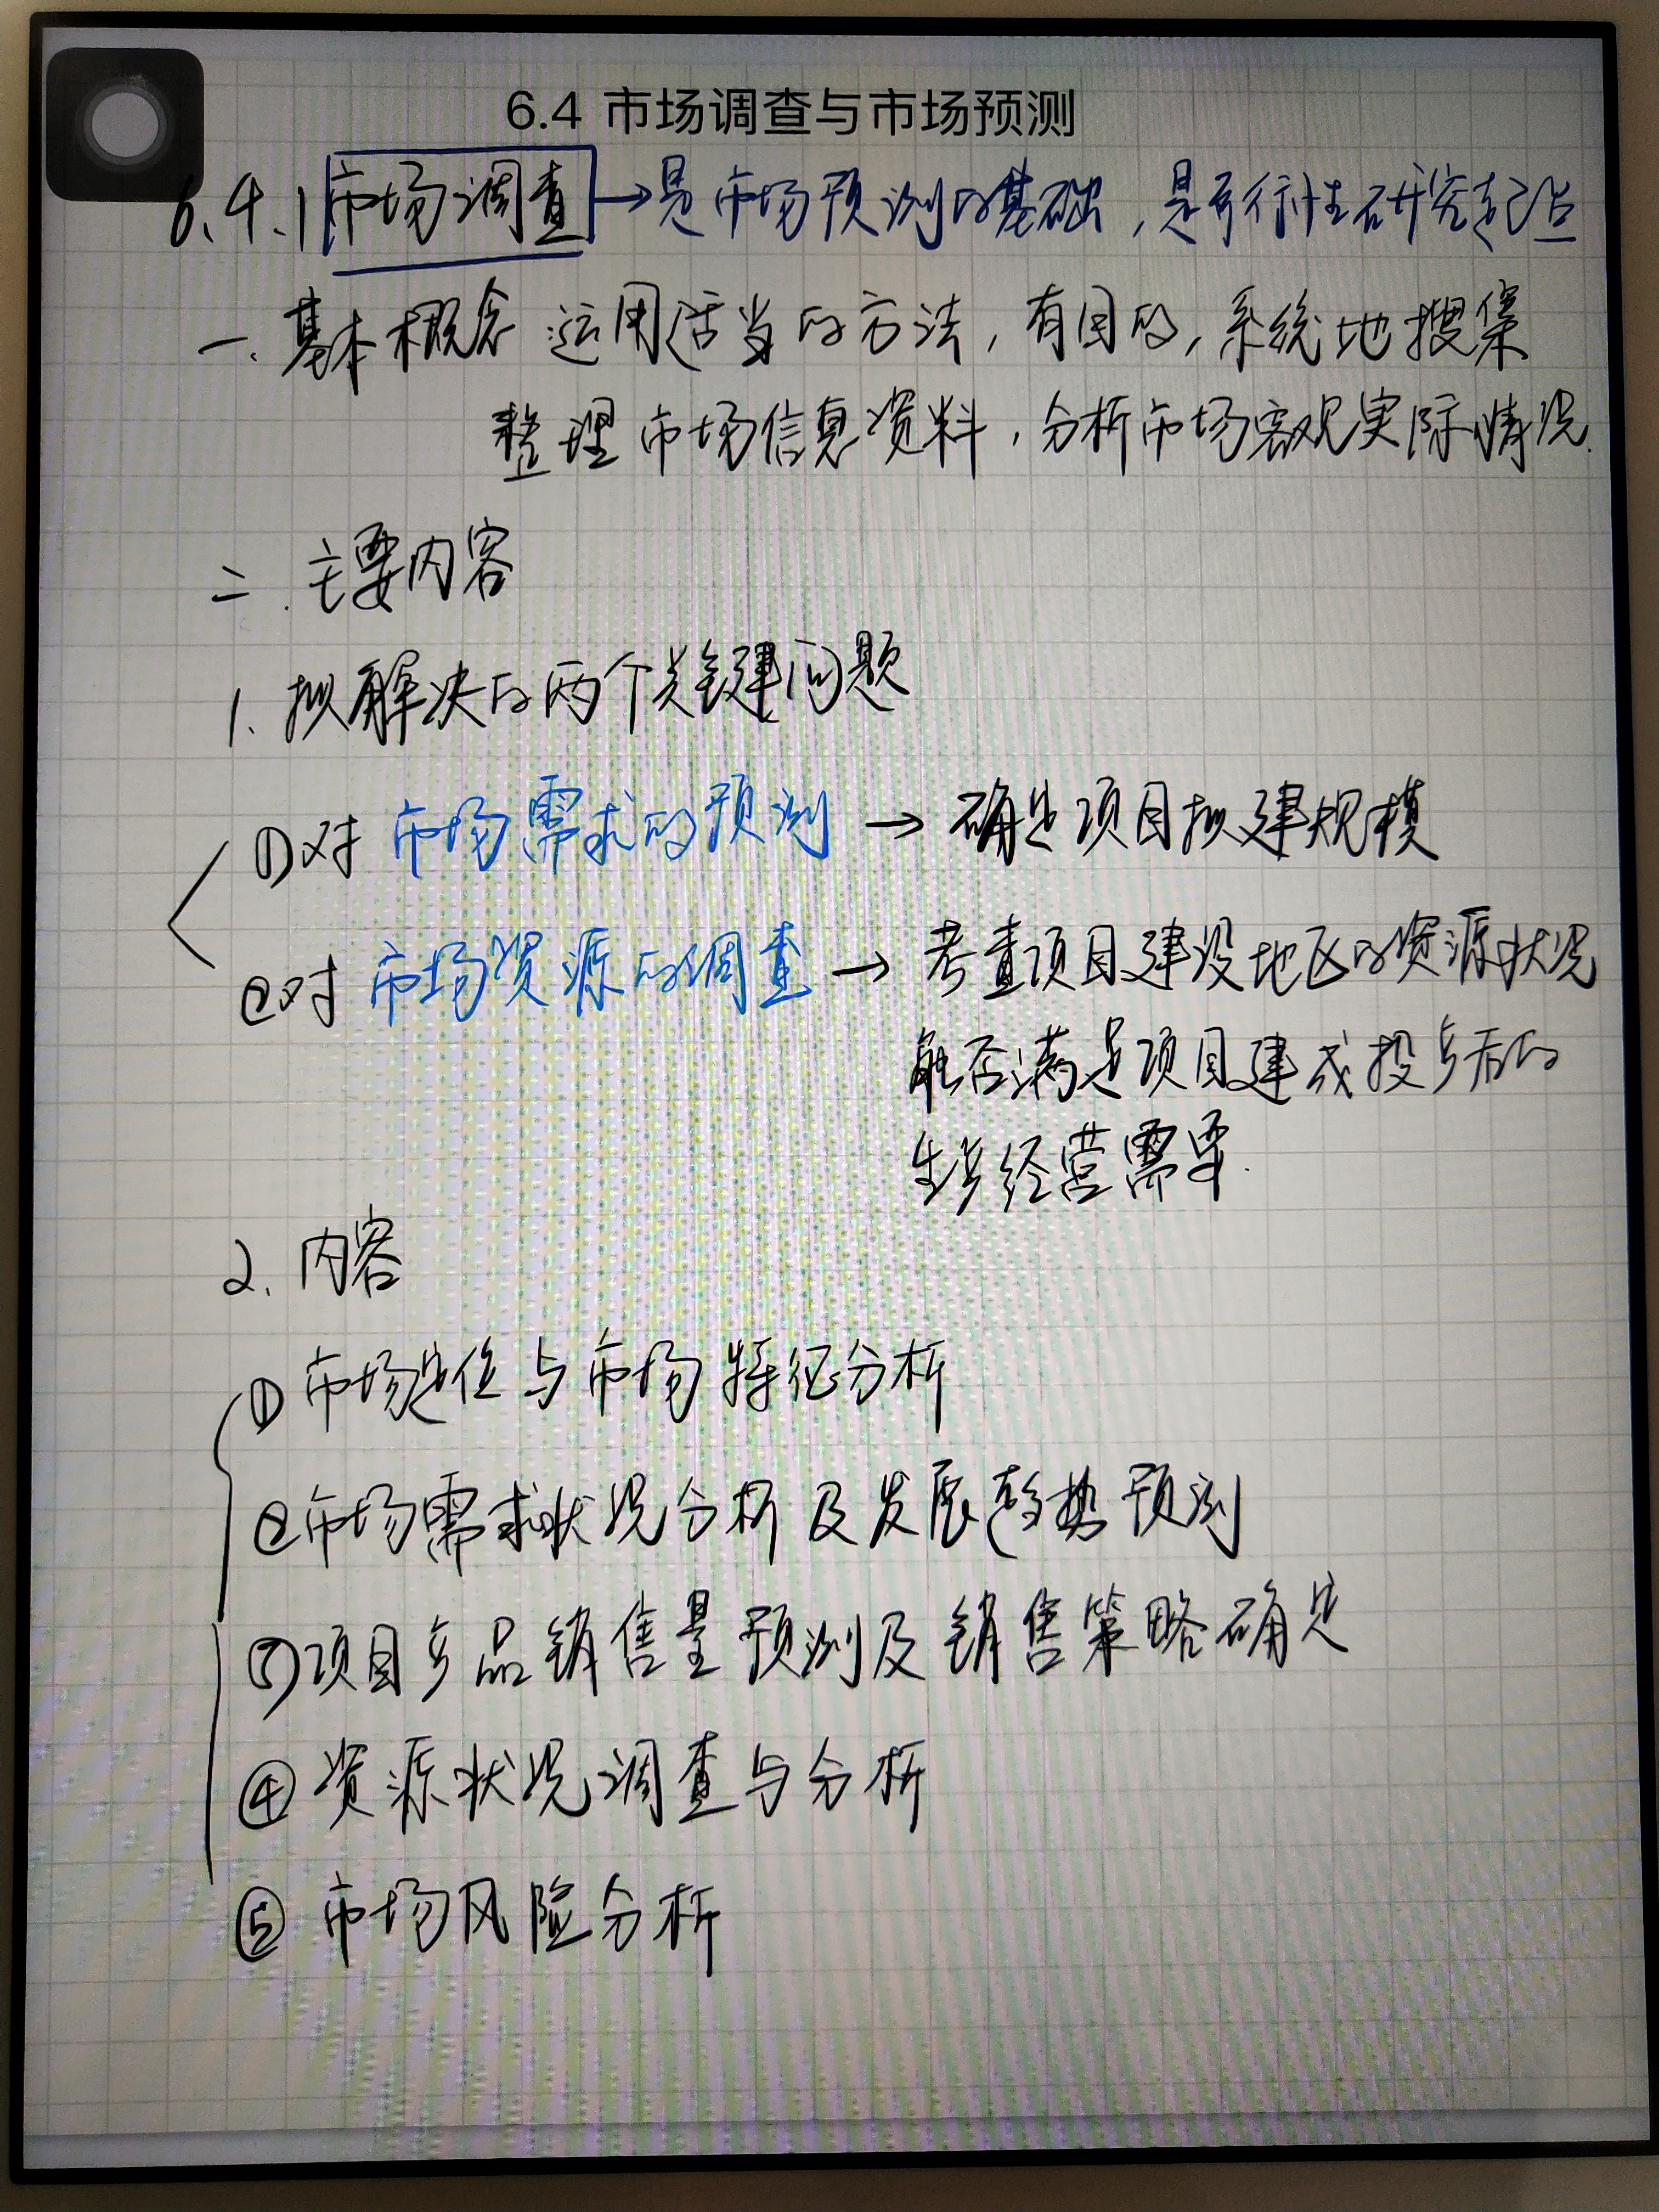 6.4 市场调查与市场预测
6.4.1 市场调查→是市场预测的基础,是可行性研究起点
一.基本概念 运用适当的方法,有目的,系统地搜集
整理市场信息资料,分析市场客观实际情况.
二.主要内容
1.拟解决的两个关键问题
①对市场需求的预测→确定项目拟建规模
②对市场资源的调查→考查项目建设地区的资源状况
能否满足项目建成投产后的
生产经营需要.
2.内容
①市场定位与市场特征分析
②市场需求状况分析及发展趋势预测
③项目产品销售量预测及销售策略确定
④资源状况调查与分析
⑤市场风险分析